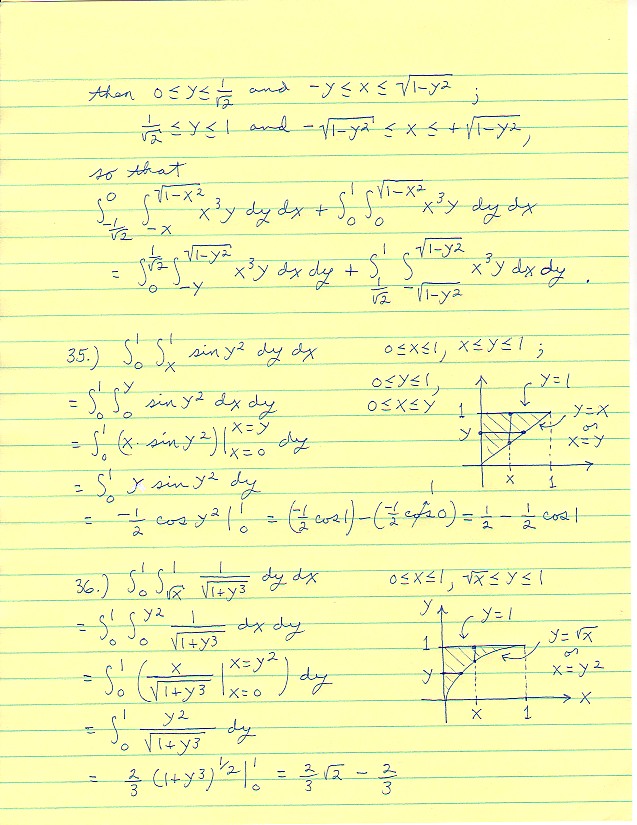 then 0 ≤ y ≤ 1/√2 and -y ≤ x ≤ √(1-y²) ;
1/√2 ≤ y ≤ 1 and -√(1-y²) ≤ x ≤ +√(1-y²),
so that
∫_{-1/√2}^{0} ∫_{-x}^{√(1-x²)} x³y dy dx + ∫_0^1 ∫_0^{√(1-x²)} x³y dy dx
= ∫_0^{1/√2} ∫_{-y}^{√(1-y²)} x³y dx dy + ∫_{1/√2}^{1} ∫_{-√(1-y²)}^{√(1-y²)} x³y dx dy .
35.) ∫_0^1 ∫_x^1 sin y² dy dx 0≤x≤1, x≤y≤1 ;
= ∫_0^1 ∫_0^y sin y² dx dy 0≤y≤1,
0≤x≤y
= ∫_0^1 (x· sin y²)|_{x=0}^{x=y} dy
= ∫_0^1 y sin y² dy
= -1/2 cos y² |_0^1 = (-1/2 cos 1) - (-1/2 cos 0) = 1/2 - 1/2 cos 1
1
y=1
1
y=x
or
x=y
y
x
1
36.) ∫_0^1 ∫_{√x}^1 1/√(1+y³) dy dx 0≤x≤1, √x≤y≤1
= ∫_0^1 ∫_0^{y²} 1/√(1+y³) dx dy
= ∫_0^1 ( x/√(1+y³) |_{x=0}^{x=y²} ) dy
= ∫_0^1 y²/√(1+y³) dy
= 2/3 (1+y³)^{1/2} |_0^1 = 2/3 √2 - 2/3
y
y=1
1
y=√x
or
x=y²
y
x
1
x